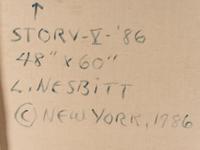 ↑
STORV-V-'86
48" x 60"
L. NESBITT
© NEW YORK, 1986